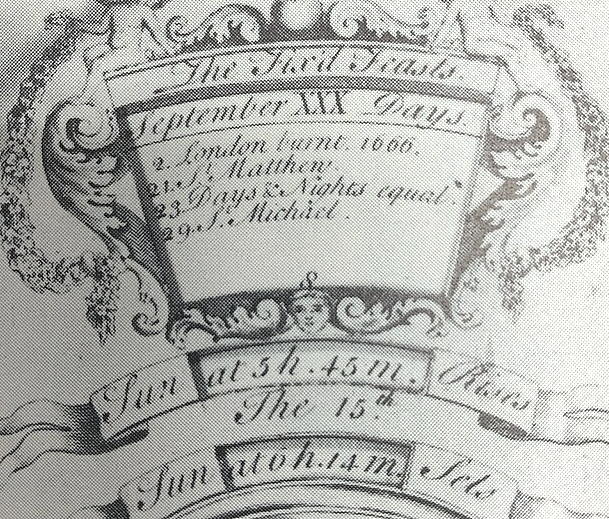 The Fixd Feasts.
September XXX Days.
2. London burnt. 1666.
21. St Matthew.
23 Days & Nights equal.
29 S. Michael.
8
Sun at 5 h. 45 m. Rises
The 15th
Sun at 6 h. 14 m. Sets